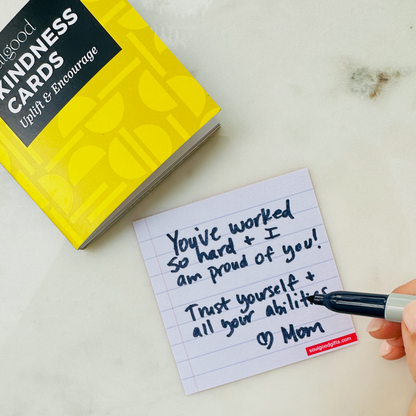 lgood
KINDNESS
CARDS
Uplift & Encourage
You've worked
so hard + I
am proud of you!
Trust yourself +
all your abilities
♡ Mom
soulgoodgifts.com